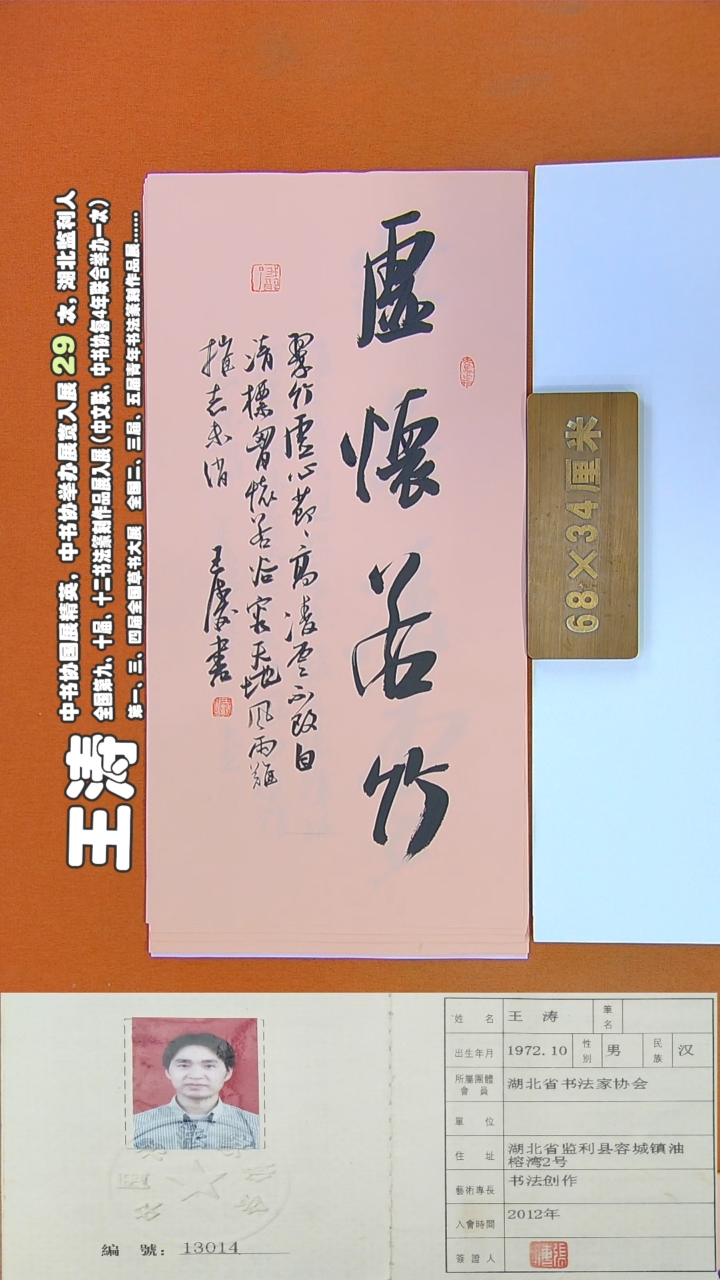 王涛
中书协国展精英，中书协举办展赛入展 29 次，湖北监利人
全国第九、十届、十二书法篆刻作品展入展（中文联、中书协每4年联合举办一次）
第一、三、四届全国草书大展 全国二、三届、五届青年书法篆刻作品展……
虛懷若竹
翠竹虚心节节高凌云不改自
清標胷懷若谷容天地风雨難
摧志未消
王涛書
68×34厘米
姓名 王涛 筆名
出生年月 1972.10 性別 男 民族 汉
所屬團體會員 湖北省书法家协会
單位
住址 湖北省监利县容城镇油
榕湾2号
藝術專長 书法创作
入會時間 2012年
簽證人
編號：13014